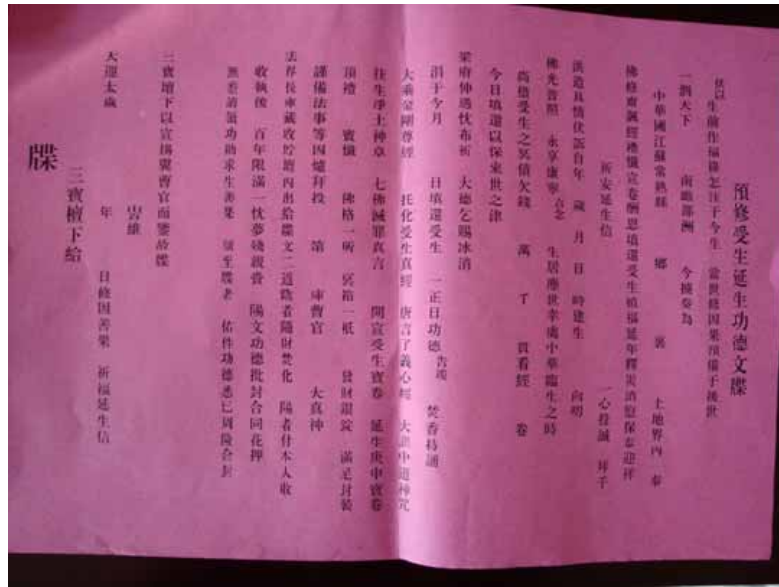 預修受生延生功德文牒
伏以
生前作福條怎注于今生 當世修因果預備于後世
一泗天下 南贍部洲 今據奏為
中華國江蘇常熟縣 鄉 裏 土地界內 奉
佛修齋諷經禮懺宣卷酬恩填還受生植福延年釋災消愆保泰迎祥
祈安延生信 一心投誠 拜干
洪造具情伏訴自年 歲 月 日 時建生 向叨
佛光普照 永享康寧 言念 生居塵世幸處中華臨生之時
尚揹受生之冥債欠錢 萬 千 貫看經 卷
今日填還以保來世之津
梁府伸過忱布祈 大德乞賜冰消
涓于今月 日填還受生 一正日功德 告竣 焚香持誦
大乘金剛尊經 托化受生真經 唐言了義心經 大悲中道神咒
往生淨土神章 七佛滅罪真言 開宣受生寶卷 延生庚申寶卷
頂禮 寶懺 佛格一所 冥箱一祗 發財銀錠 滿疋封裝
謹備法事等因爐拜投 第 庫曹官 大真神
法界長庫藏收貯壇內出給牒文二道陰者隨財焚化 陽者什本人收
收執後 百年限滿一忱夢殘親賚 陽文功德批封合同花押
無差請領功助求生善果 須至牒者 佑件功德悉已周隆合封
三寶壇下以宣揚冥曹官而鑒於牒
旹維
天運太歲 年 日修因善果 祈福延生信
三寶壇下給
牒